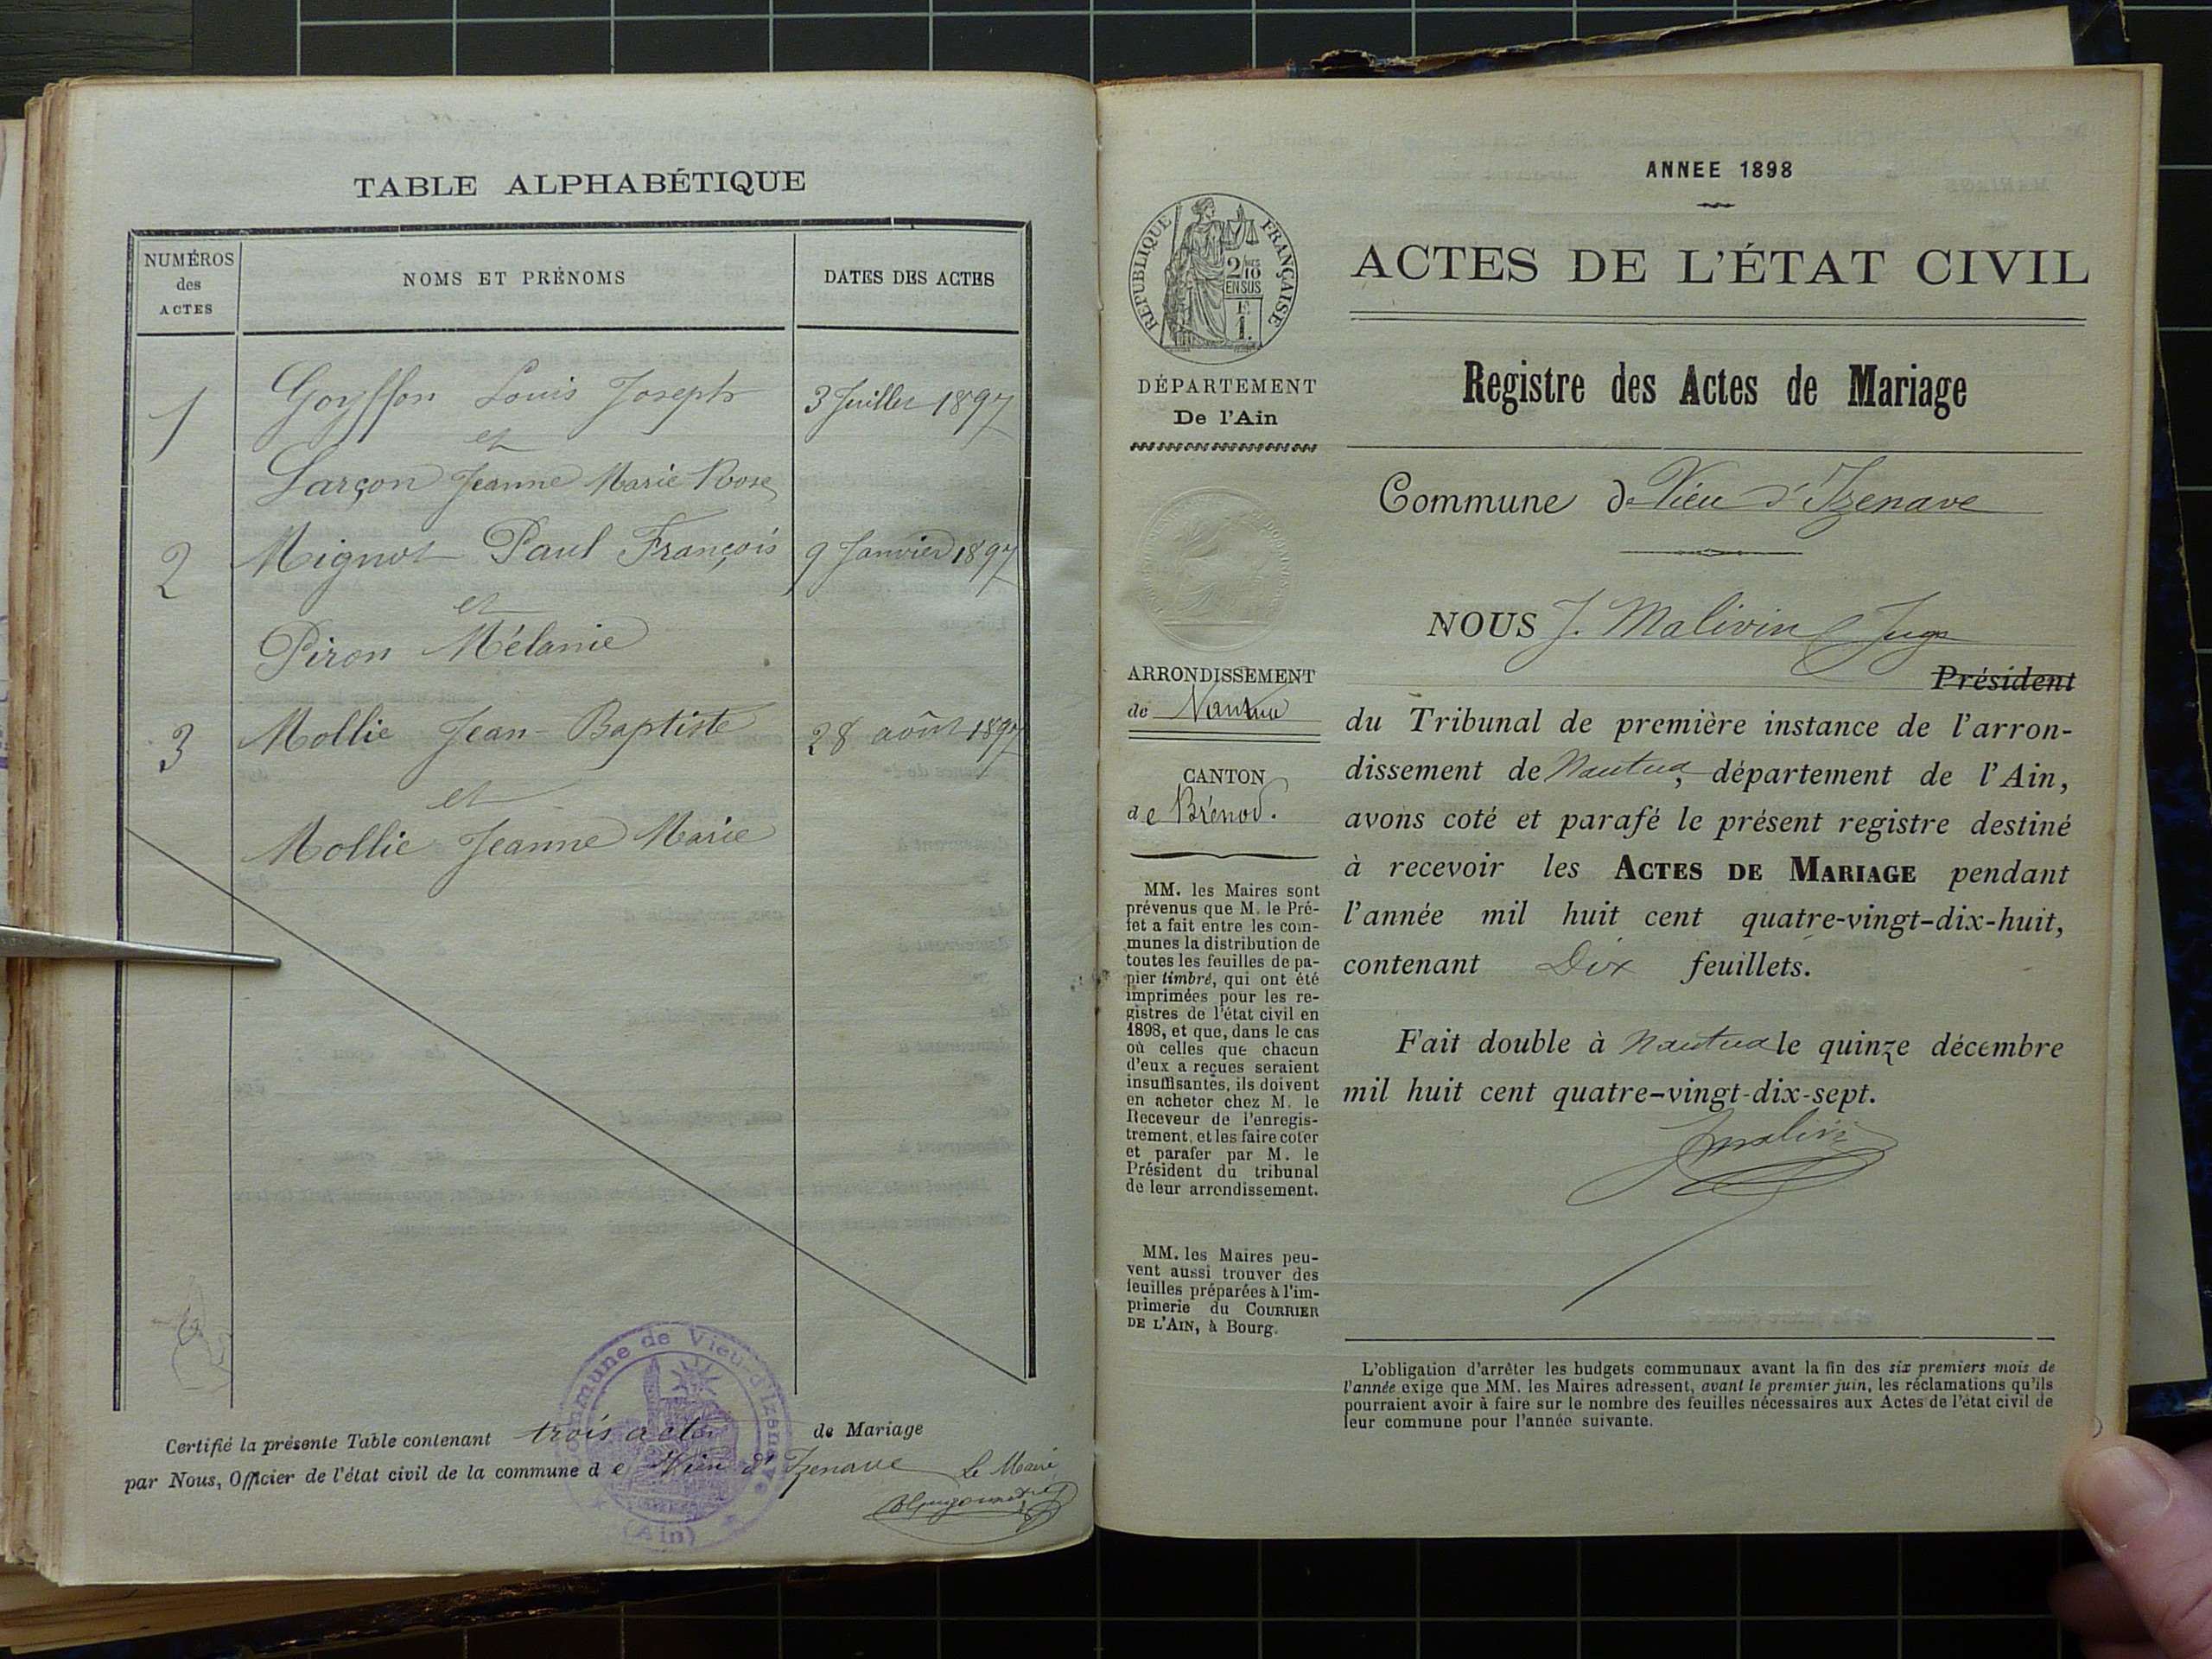 TABLE ALPHABÉTIQUE
NUMÉROS
des
ACTES
NOMS ET PRÉNOMS
DATES DES ACTES
1
Goyffon Louis Joseph
3 Juillet 1897
et
Larçon Jeanne Marie Rose
2
Mignot Paul François
9 Janvier 1897
et
Piron Mélanie
3
Mollie Jean-Baptiste
28 août 1897
et
Mollie Jeanne Marie
Certifié la présente Table contenant trois actes de Mariage
par Nous, Officier de l'état civil de la commune de Vieu d'Izenave Le Maire
Commune de Vieu-d'Izenave
(Ain)
ANNEE 1898
RÉPUBLIQUE FRANÇAISE
2/10
EN SUS
1.
ACTES DE L'ÉTAT CIVIL
DÉPARTEMENT
De l'Ain
Registre des Actes de Mariage
Commune de Vieu d'Izenave
NOUS J. Malivin Juge
Président
ARRONDISSEMENT
de Nantua
CANTON
de Brénod.
du Tribunal de première instance de l'arron-
dissement de Nantua, département de l'Ain,
avons coté et parafé le présent registre destiné
à recevoir les ACTES DE MARIAGE pendant
l'année mil huit cent quatre-vingt-dix-huit,
contenant Dix feuillets.
Fait double à Nantua le quinze décembre
mil huit cent quatre-vingt-dix-sept.
Jmalivin
MM. les Maires sont
prévenus que M. le Pré-
fet a fait entre les com-
munes la distribution de
toutes les feuilles de pa-
pier timbré, qui ont été
imprimées pour les re-
gistres de l'état civil en
1898, et que, dans le cas
où celles que chacun
d'eux a reçues seraient
insuffisantes, ils doivent
en acheter chez M. le
Receveur de l'enregis-
trement, et les faire coter
et parafer par M. le
Président du tribunal
de leur arrondissement.
MM. les Maires peu-
vent aussi trouver des
feuilles préparées à l'im-
primerie du COURRIER
DE L'AIN, à Bourg.
L'obligation d'arrêter les budgets communaux avant la fin des six premiers mois de
l'année exige que MM. les Maires adressent, avant le premier juin, les réclamations qu'ils
pourraient avoir à faire sur le nombre des feuilles nécessaires aux Actes de l'état civil de
leur commune pour l'année suivante.